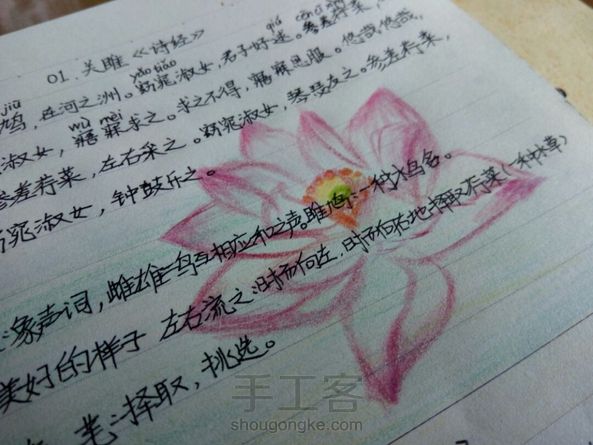 01. 关雎《诗经》
jiū yǎo tiǎo qiú cēn cī
鸠，在河之洲。窈窕淑女，君子好逑。参差荇菜，
wù mèi
淑女，寤寐求之。求之不得，寤寐思服。悠哉悠哉，
参差荇菜，左右采之。窈窕淑女，琴瑟友之。参差荇菜，
窕淑女，钟鼓乐之。
象声词，雌雄二鸟相应和之声。雎鸠：一种水鸟名。
美好的样子 左右流之：时而向左，时而向右地择取荇菜（一种水草）
芼：择取，挑选。
手工客
shougongke.com